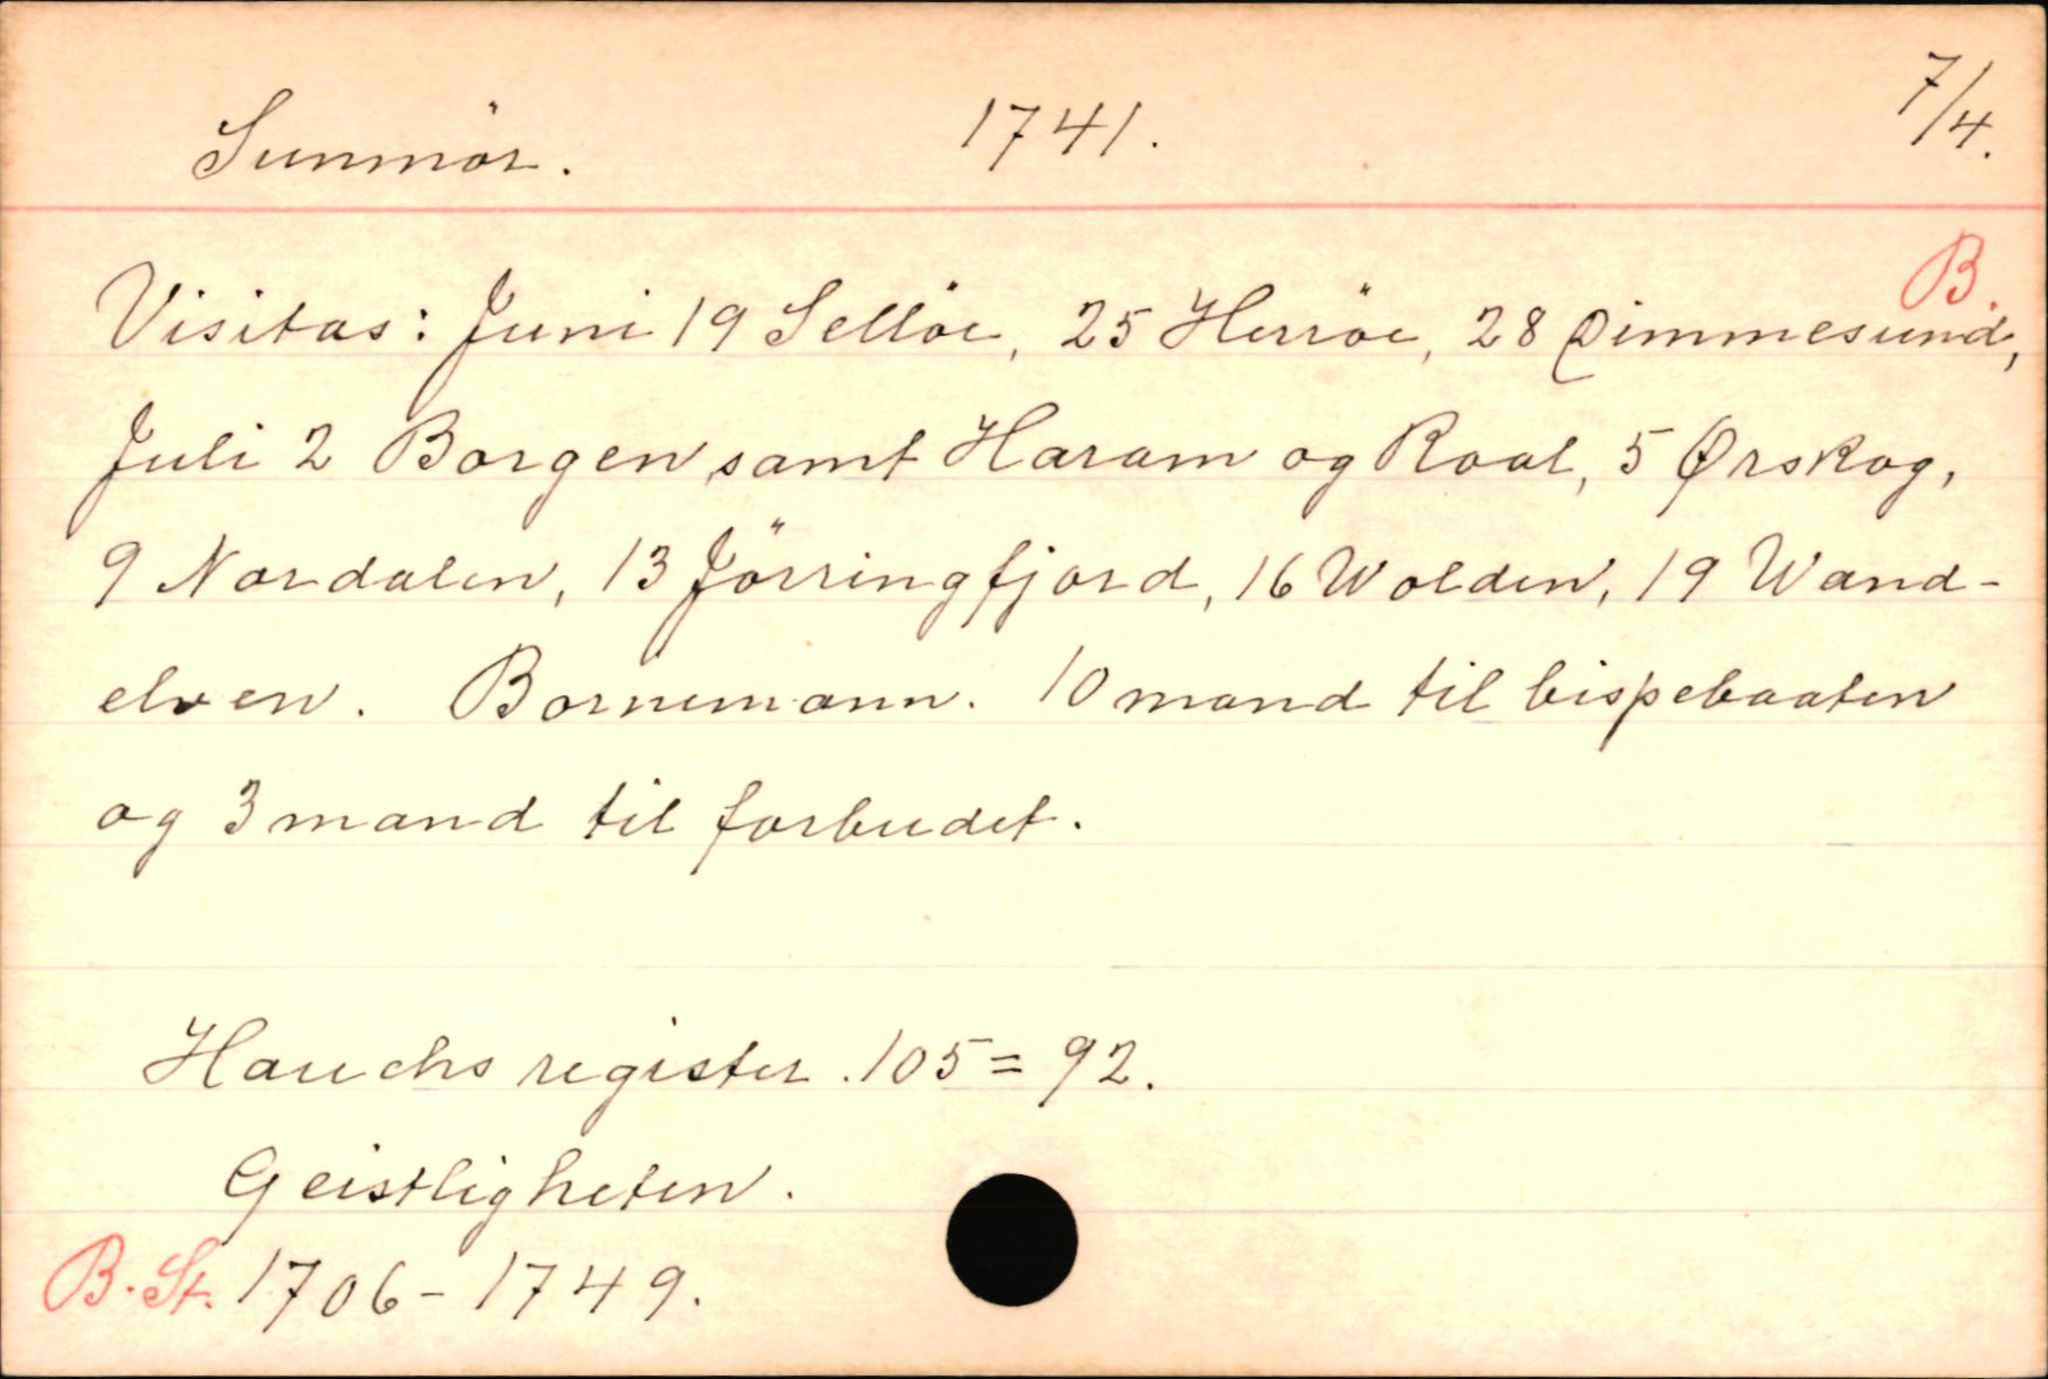 Sunmör. 1741. 7/4.
B.
Visitas: Juni 19 Sellöe, 25 Herröe, 28 Dimmesund,
Juli 2 Borgen samt Haram og Roal, 5 Ørskog,
9 Nordalen, 13 Jörringfjord, 16 Wolden, 19 Wand-
elven. Bornemann. 10 mand til bispebaaten
og 3 mand til forbudet.
Hauchs register. 105 = 92.
Geistligheten.
B. St. 1706-1749.